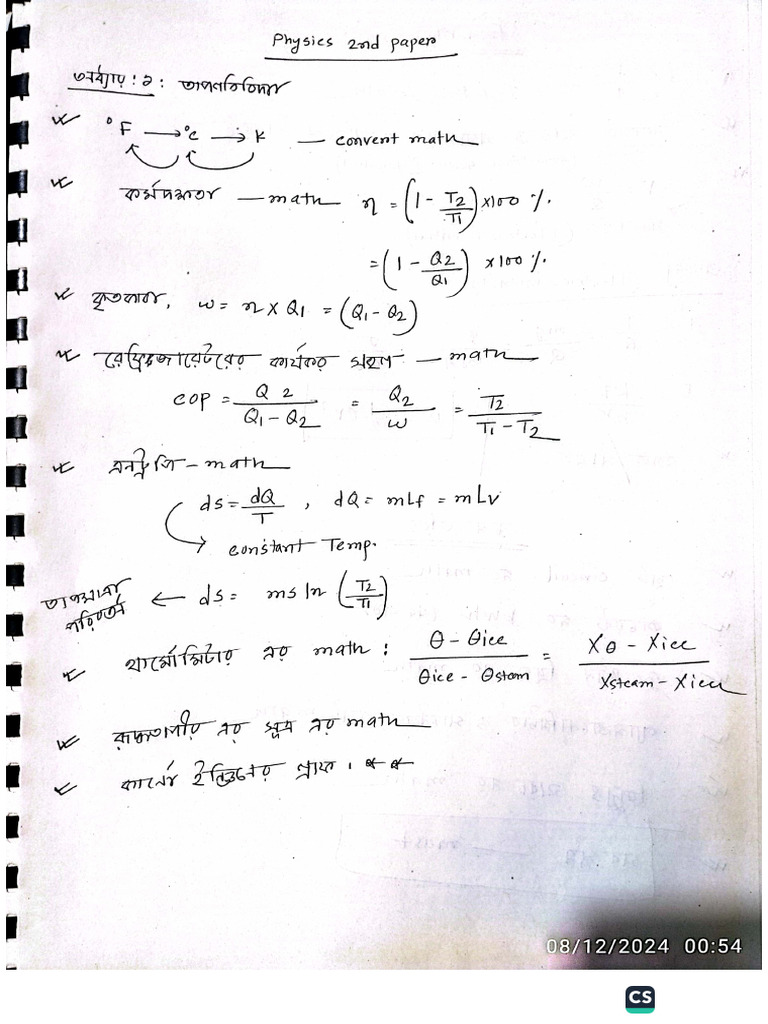 Physics 2nd paper
অধ্যায় : ১ : তাপগতিবিদ্যা
°F → °c → K — convent math
কর্মদক্ষতার — math η = (1 - T2/T1) × 100 %.
= (1 - Q2/Q1) × 100 %.
কৃতকাজ, W = η × Q1 = (Q1 - Q2)
রেফ্রিজারেটরের কার্যকর সহগ — math
COP = Q2/(Q1 - Q2) = Q2/W = T2/(T1 - T2)
এনট্রপি - math
ds = dQ/T , dQ = mLf = mLv
constant Temp.
তাপমাত্রার পরিবর্তন ← ds = ms ln (T2/T1)
থার্মোমিটার এর math : (θ - θice)/(θice - θsteam) = (Xθ - Xice)/(Xsteam - Xice)
রুদ্ধতাপীয় এর সূত্র এর math
কার্নো ইঞ্জিনের গ্রাফ । * *
08/12/2024 00:54
CS